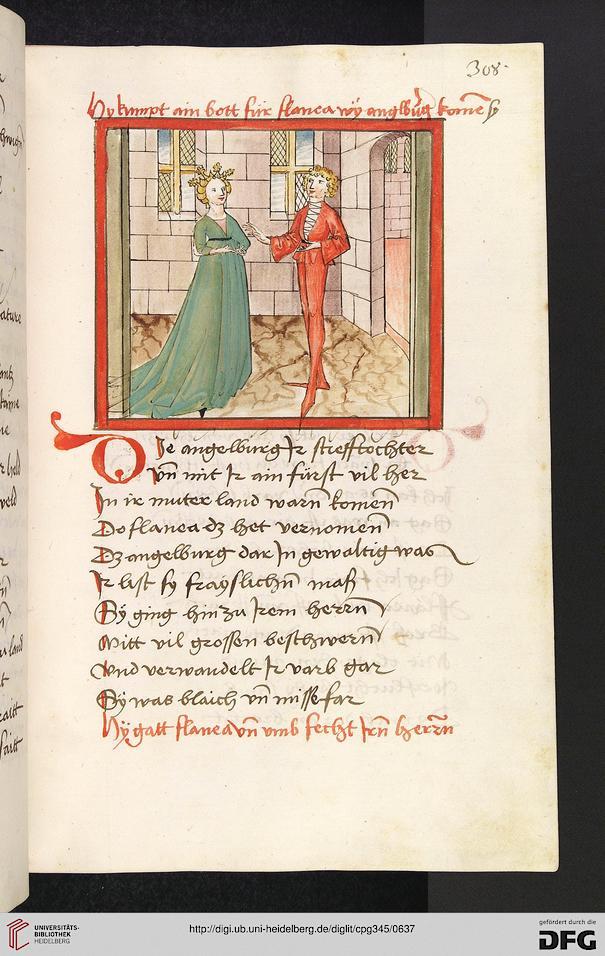 308
Hy kumpt ain bott für flanea wÿ angelburg komē sy
Die angelburg Ir stefftochter
Vn̄ mit Ir ain fürst vil her
In ir muter land warn̄ komen̄
Do flanea dz het vernomen̄
Dz angelburg dar In gewaltig was
Ir last sy frayslichn̄ maß
Sy ging hin zu Irem herrn̄
Mitt vil grossen beschwern̄
Vnd verwandelt Ir varb gar
Sy was blaich vn̄ misse far
Hÿ gatt flanea vn̄ vmb fecht Irn̄ herrn̄
UNIVERSITÄTS-
BIBLIOTHEK
HEIDELBERG
http://digi.ub.uni-heidelberg.de/diglit/cpg345/0637
gefördert durch die
DFG